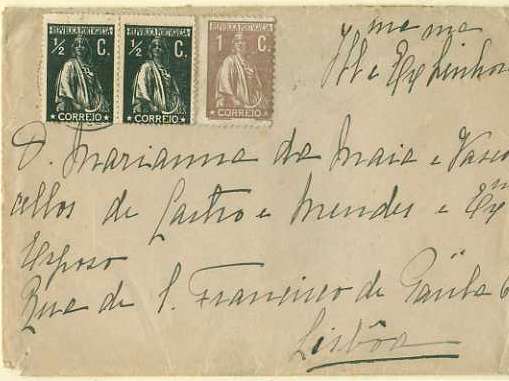 REPUBLICA PORTUGUESA REPUBLICA PORTUGUESA REPUBLICA PORTUGUESA
½ C. ½ C. 1 C.
CORREIO CORREIO CORREIO
Ill ma e Ex ma Senhora
D. Marianna da Maia e Vascon
cellos de Castro e Mendes e Ex mo
Esposo
Rua de S. Francisco de Paula 6
Lisbôa